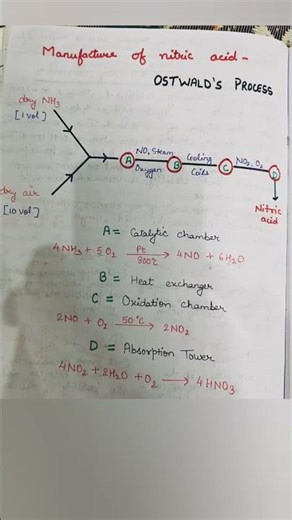 Manufacture of nitric acid -
OSTWALD'S PROCESS
dry NH₃
[1 vol]
dry air
[10 vol]
A
NO, Steam
Oxygen
B
Cooling
Coils
C
NO₂, O₂
D
Nitric
acid
A = Catalytic chamber
4NH₃ + 5O₂ Pt 800°C → 4NO + 6H₂O
B = Heat exchanger
C = Oxidation chamber
2NO + O₂ 50°C → 2NO₂
D = Absorption Tower
4NO₂ + 2H₂O + O₂ → 4HNO₃